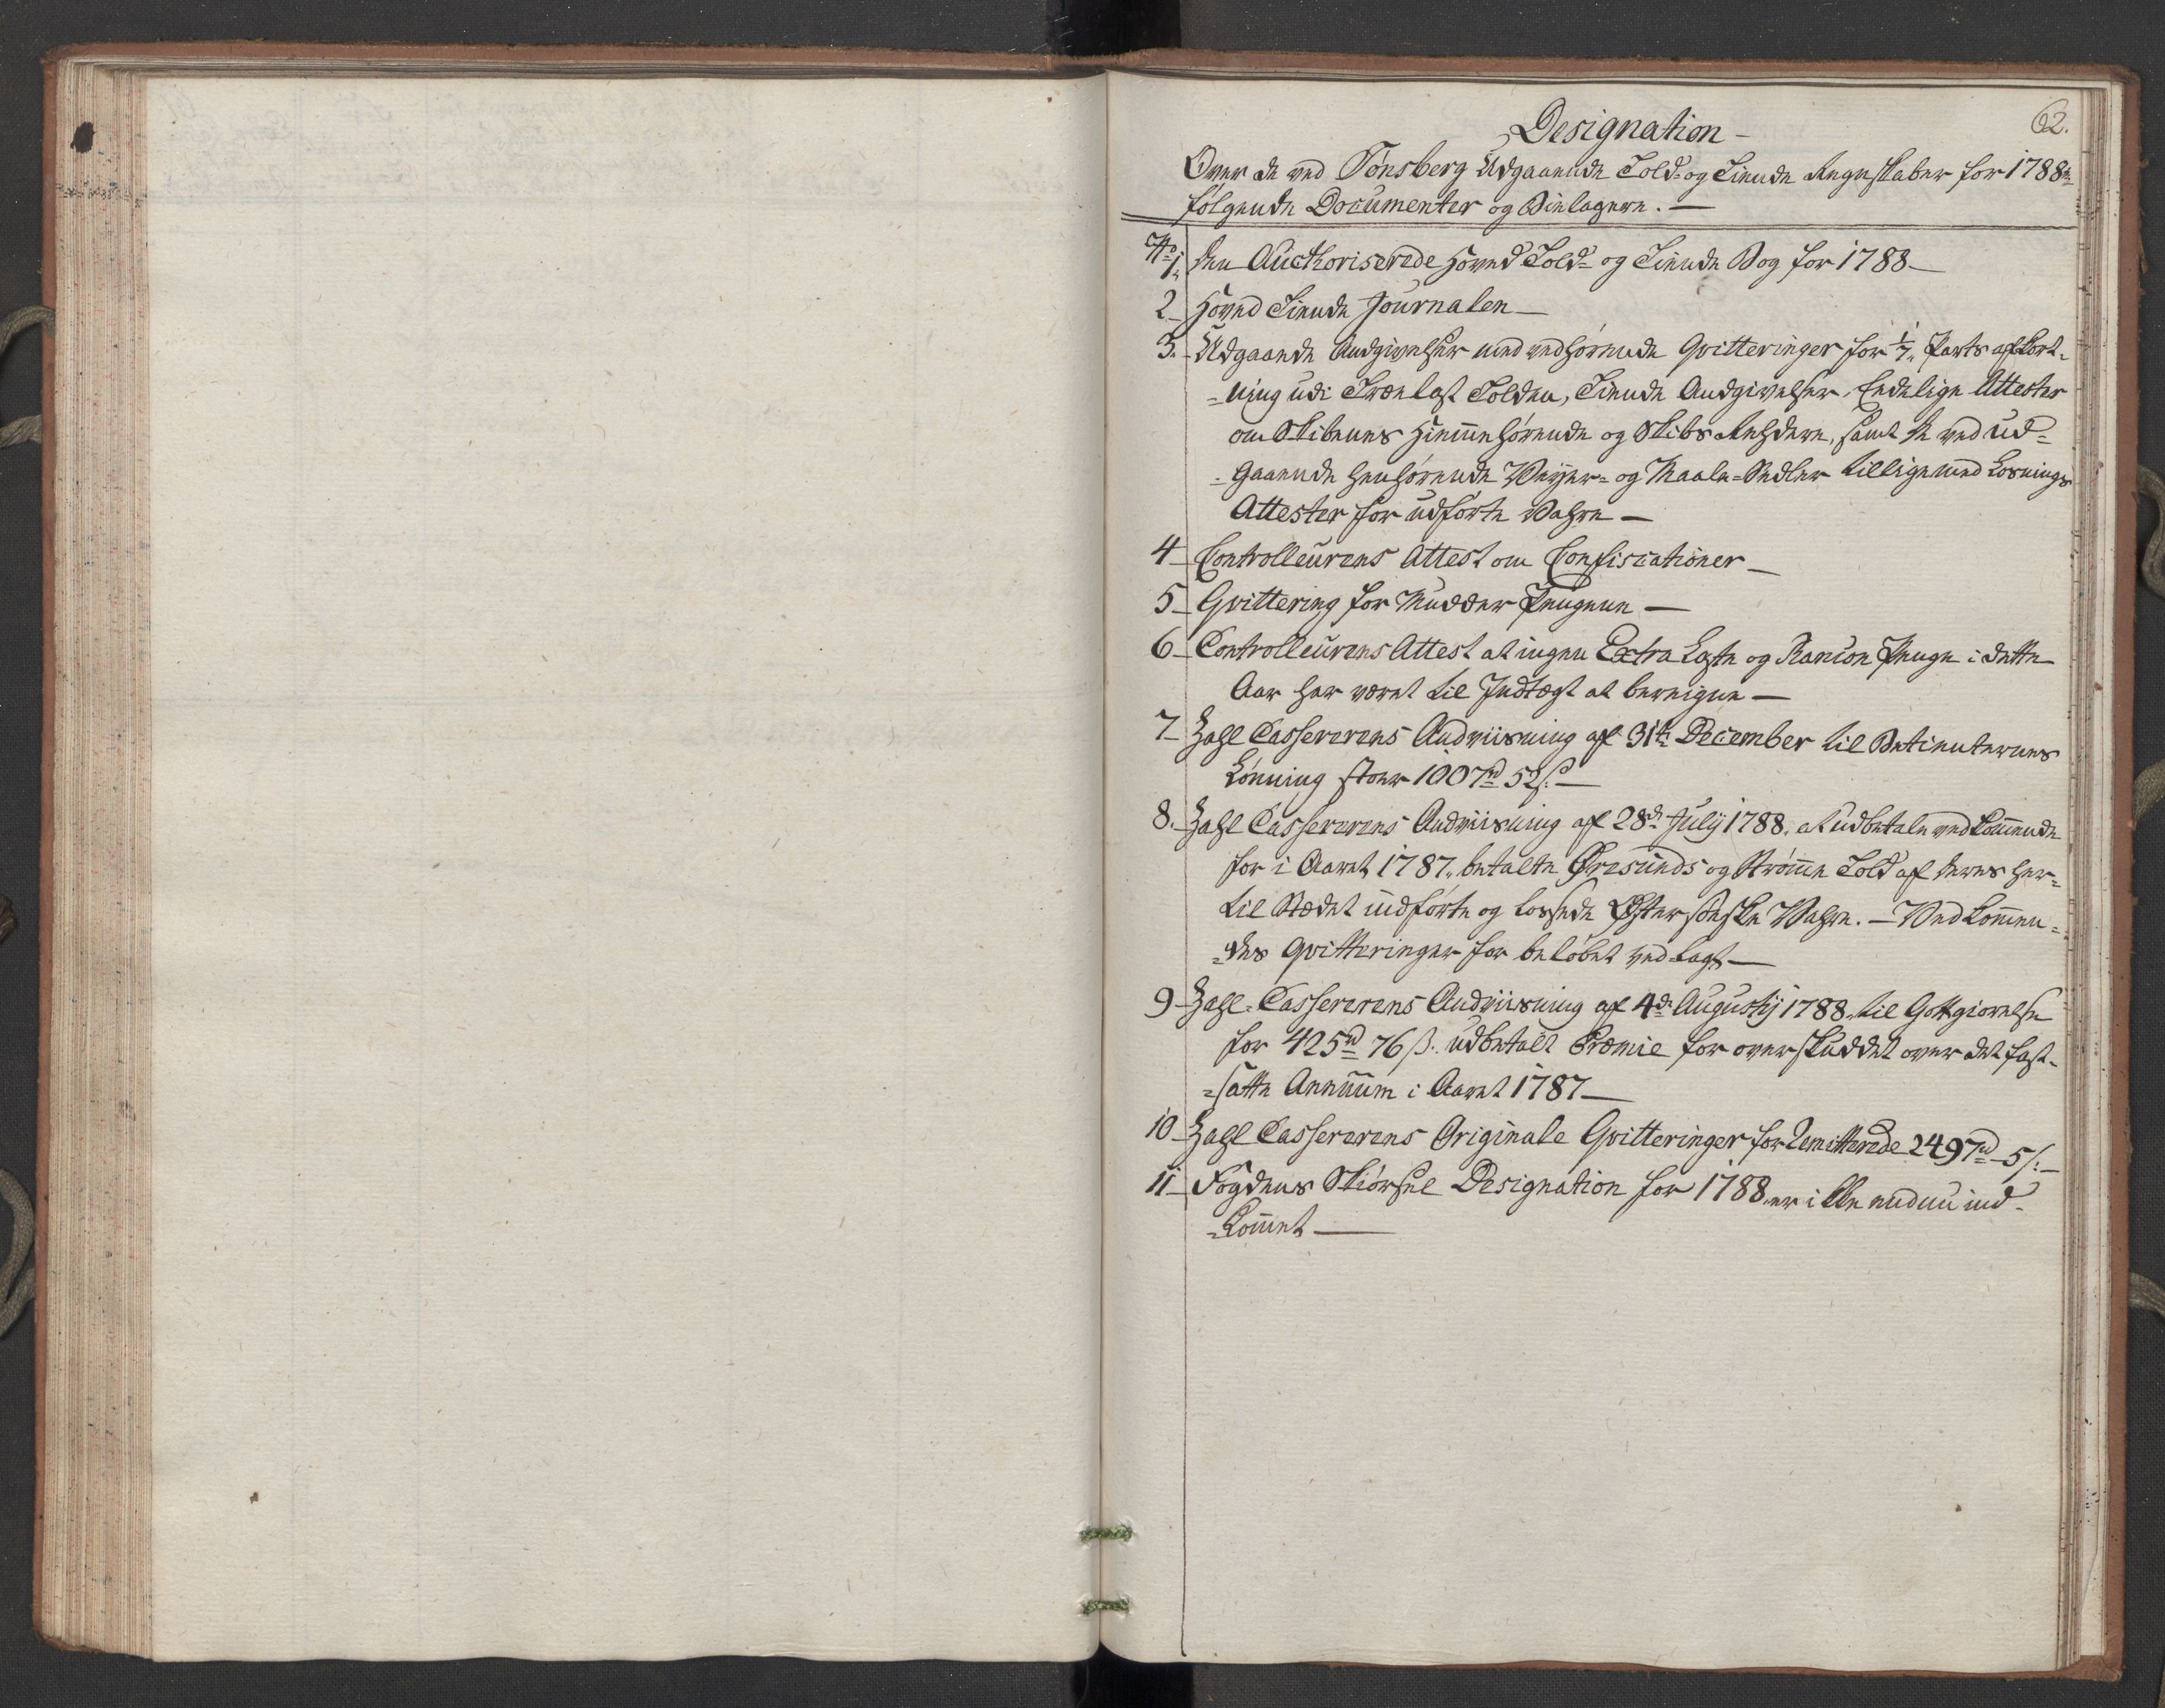 62.
Designation -
Over de ved Tønsberg Udgaaende Told- og Tiende Regnskaber for 1788
følgende Documenter og Bielagere. -
No 1. Den Aucthoriserede Hoved Told- og Tiende Bog for 1788 -
2 - Hoved Tiende Journalen -
3. - Udgaaende Andgivelser med vedhørende Qvitteringer for 1/7. Parts afkort-
=ning udi Trælast Tolden, Tiende Andgivelser, Endelige Attester
om Skibenes Hiemmehørende og Skibs Rehdere, samt de ved ud=
=gaaende henhørende Veyer- og Maale-Sedler tilligemed Losnings
Attester for udførte Vahre -
4 - Controlleurens Attest om Confiscationer -
5 - Qvittering for Mudder Pengene -
6 - Controlleurens Attest at ingen Extra Laste og Rancon Penge i dette
Aar har været til Indtægt at beregne -
7 - Zahl Cassererens Andviisning af 31te December til Betienternes
Lønning stoer 1007rd 52s. -
8. - Zahl Cassererens Andviisning af 28de July 1788. at udbetale vedkommende
for i Aaret 1787. betalte Øresunds og Strømme Told af deres her=
til Stædet indførte og lossede Østersøeske Vahre. - Vedkommen=
=des Qvitteringer for beløbet vedlagt -
9 - Zahl-Cassererens Andviisning af 4de Augustij 1788. til Gottgiørelse
for 425rd 76 s. udbetalt Præmie for overskuddet over det fast-
=satte Annuum i Aaret 1787 -
10 - Zahl Cassererens Originale Qvitteringer for Remitterede 2497rd 5s. -
11 - Fogdens Skiørsel Designation for 1788. er ikke endnu ind-
=kommet -